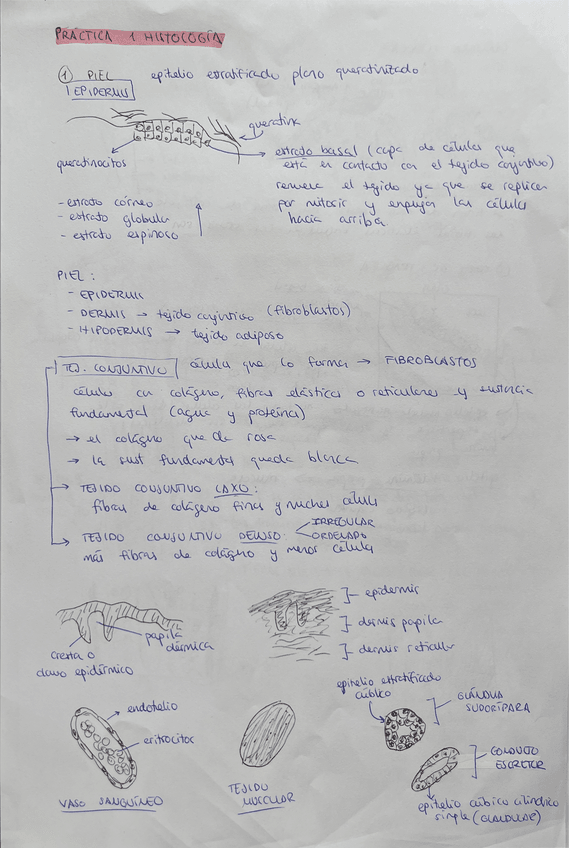 PRÁCTICA 1 HISTOLOGÍA
1 PIEL epitelio estratificado plano queratinizado
EPIDERMIS
queratina
queratinocitos
estrato basal (capa de células que
está en contacto con el tejido conjuntivo)
renueva el tejido ya que se replican
por mitosis y empujan las células
hacia arriba
- estrato córneo
- estrato globular
- estrato espinoso
PIEL:
- EPIDERMIS
- DERMIS → tejido conjuntivo (fibroblastos)
- HIPODERMIS → tejido adiposo
TEJ. CONJUNTIVO células que lo forman → FIBROBLASTOS
células en colágeno, fibras elásticas o reticulares y sustancia
fundamental (agua y proteína)
→ el colágeno queda rosa
→ la sust fundamental queda blanca
→ TEJIDO CONJUNTIVO LAXO:
fibras de colágeno finas y muchas células
→ TEJIDO CONJUNTIVO DENSO: IRREGULAR
ORDENADO
más fibras de colágeno y menos células
papila
dérmica
cresta o
clavo epidérmico
epidermis
dermis papilar
dermis reticular
endotelio
eritrocitos
VASO SANGUÍNEO
TEJIDO
MUSCULAR
epitelio estratificado
cúbico
GLÁNDULA
SUDORÍPARA
CONDUCTO
EXCRETOR
epitelio cúbico cilíndrico
simple (GLANDULAR)